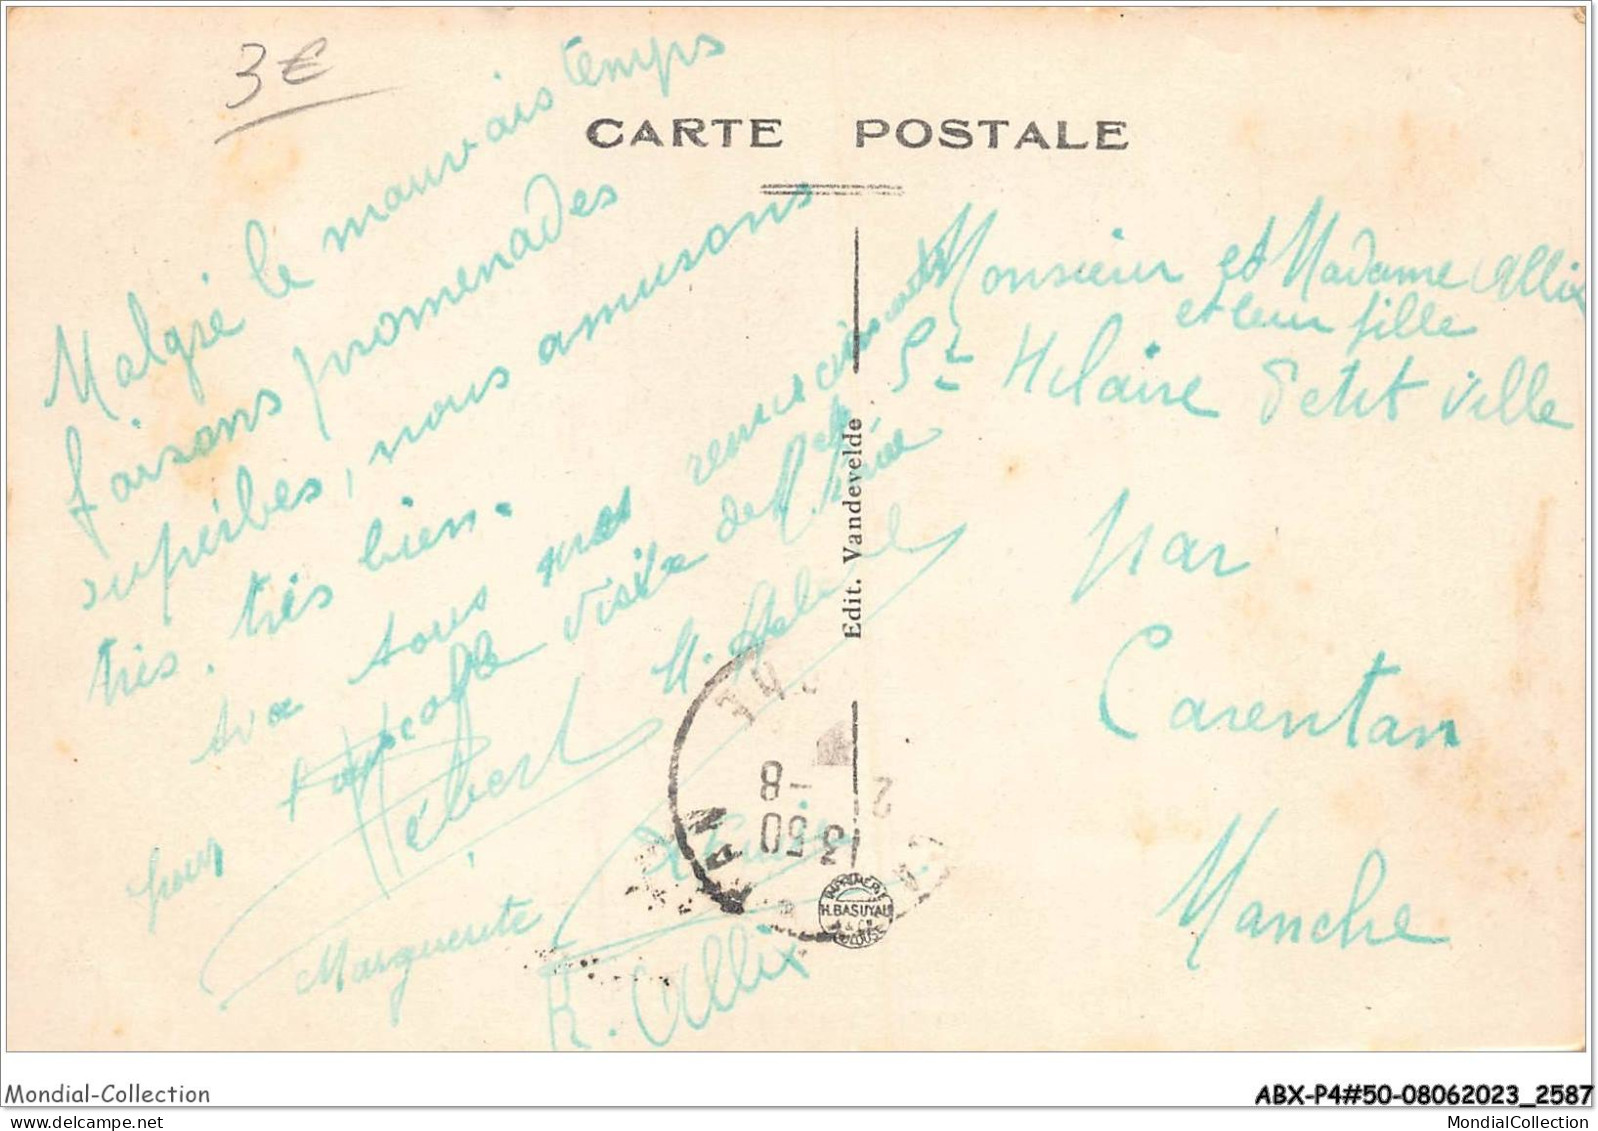 3€
CARTE POSTALE
Malgré le mauvais temps
faisons promenades
superbes, nous amusons
très. très bien.
Avec tous nos remerciements
pour
visite de Melle
M.
Hébert
Marguerite
R. Allix
Monsieur et Madame Allix
et leur fille
St Hilaire Petit Ville
par
Carentan
Manche
Edit. Vandevelde
13 50
-8
2
IMPRIMERIE
H. BASUYAU
& Cie
TOULOUSE
Mondial-Collection
ABX-P4#50-08062023_2587
www.delcampe.net
MondialCollection